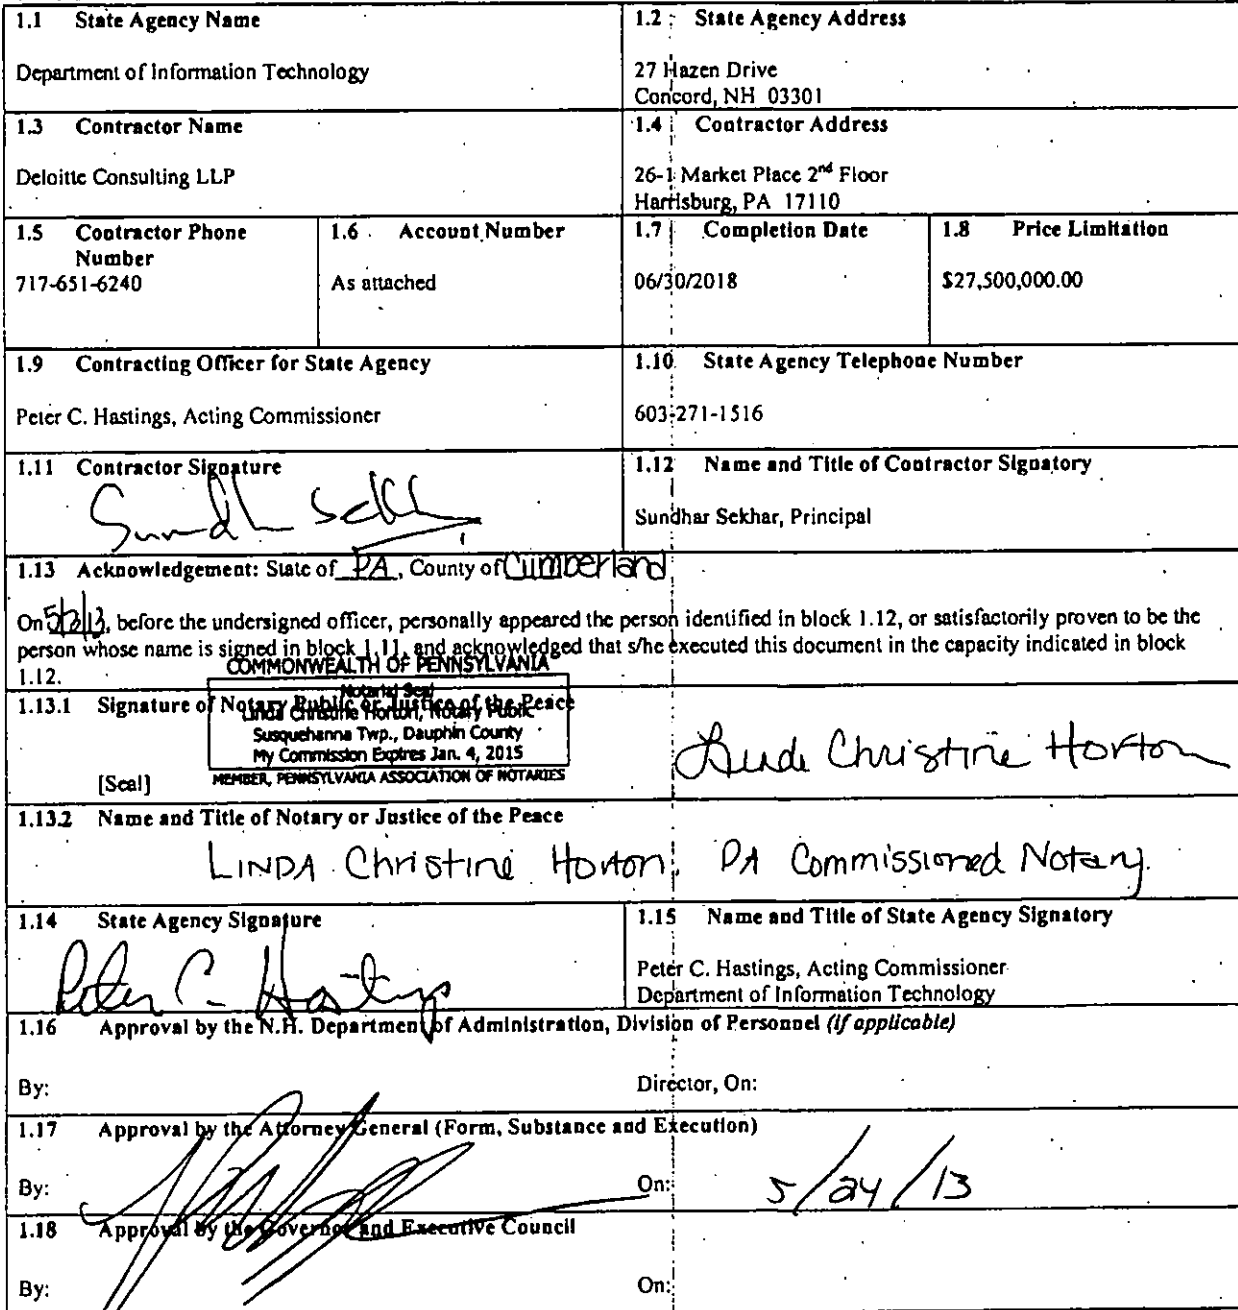 1.1 State Agency Name
Department of Information Technology
1.2 State Agency Address
27 Hazen Drive
Concord, NH 03301
1.3 Contractor Name
Deloitte Consulting LLP
1.4 Contractor Address
26-1 Market Place 2nd Floor
Harrisburg, PA 17110
1.5 Contractor Phone
Number
717-651-6240
1.6 Account Number
As attached
1.7 Completion Date
06/30/2018
1.8 Price Limitation
$27,500,000.00
1.9 Contracting Officer for State Agency
Peter C. Hastings, Acting Commissioner
1.10 State Agency Telephone Number
603-271-1516
1.11 Contractor Signature
1.12 Name and Title of Contractor Signatory
Sundhar Sekhar, Principal
1.13 Acknowledgement: State of PA, County of Cumberland
On 5/2/13, before the undersigned officer, personally appeared the person identified in block 1.12, or satisfactorily proven to be the
person whose name is signed in block 1.11, and acknowledged that s/he executed this document in the capacity indicated in block
1.12.
COMMONWEALTH OF PENNSYLVANIA
Notarial Seal
Linda Christine Horton, Notary Public
Susquehanna Twp., Dauphin County
My Commission Expires Jan. 4, 2015
MEMBER, PENNSYLVANIA ASSOCIATION OF NOTARIES
1.13.1 Signature of Notary Public or Justice of the Peace
Linda Christine Horton
[Seal]
1.13.2 Name and Title of Notary or Justice of the Peace
LINDA Christine Horton, PA Commissioned Notary.
1.14 State Agency Signature
Peter C. Hastings
1.15 Name and Title of State Agency Signatory
Peter C. Hastings, Acting Commissioner
Department of Information Technology
1.16 Approval by the N.H. Department of Administration, Division of Personnel (if applicable)
By:
Director, On:
1.17 Approval by the Attorney General (Form, Substance and Execution)
By:
On: 5/24/13
1.18 Approval by the Governor and Executive Council
By:
On: